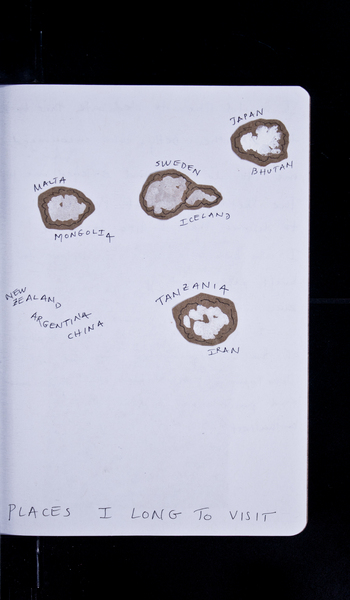 JAPAN
BHUTAN
SWEDEN
ICELAND
MALTA
MONGOLIA
NEW
ZEALAND
ARGENTINA
CHINA
TANZANIA
IRAN
PLACES I LONG TO VISIT